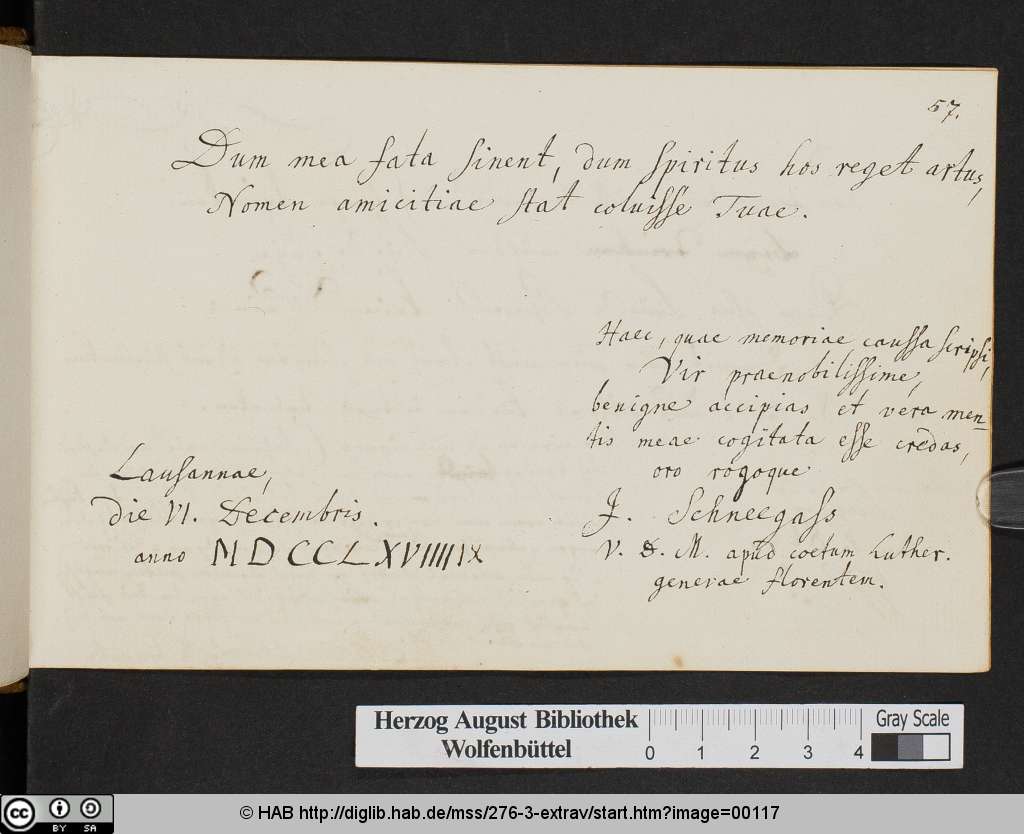 57.
Dum mea fata sinent, dum spiritus hos reget artus,
Nomen amicitiae stat coluisse Tuae.
Haec, quae memoriae caussa scripsi,
Vir praenobilissime,
benigne accipias et vera men-
tis meae cogitata esse credas,
oro rogoque
J. Schneegass
V. D. M. apud coetum Luther.
genevae florentem.
Lausannae,
die VI. Decembris.
anno MDCCLXVIIII
Herzog August Bibliothek
Wolfenbüttel
0 1 2 3 4
Gray Scale
cc BY SA
© HAB http://diglib.hab.de/mss/276-3-extrav/start.htm?image=00117